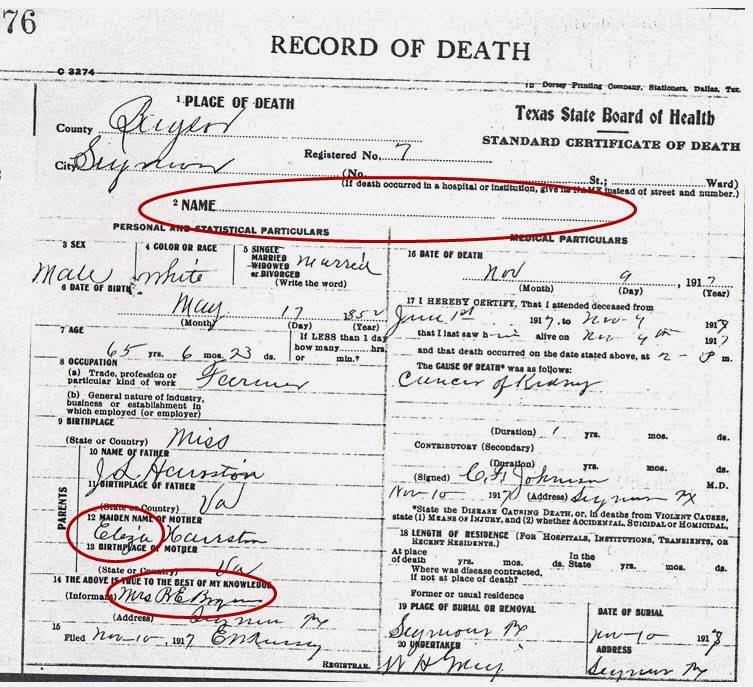 76
RECORD OF DEATH
C 3274
Dorsey Printing Company, Stationers, Dallas, Tex.
1 PLACE OF DEATH
Texas State Board of Health
STANDARD CERTIFICATE OF DEATH
County
City Seymour
Registered No. 7
(No. St.; Ward)
(If death occurred in a hospital or institution, give its NAME instead of street and number.)
2 NAME
PERSONAL AND STATISTICAL PARTICULARS
3 SEX
Male
4 COLOR OR RACE
White
5 SINGLE
MARRIED
WIDOWED
or DIVORCED
(Write the word)
Married
6 DATE OF BIRTH
May 17 1852
(Month) (Day) (Year)
7 AGE
65 yrs. 6 mos. 23 ds.
If LESS than 1 day
how many hrs.
or min.?
8 OCCUPATION
(a) Trade, profession or
particular kind of work Farmer
(b) General nature of industry,
business or establishment in
which employed (or employer)
9 BIRTHPLACE
(State or Country) Miss
PARENTS
10 NAME OF FATHER
J L Hairston
11 BIRTHPLACE OF FATHER
(State or Country) Va
12 MAIDEN NAME OF MOTHER
Eliza Hairston
13 BIRTHPLACE OF MOTHER
(State or Country) Va
14 THE ABOVE IS TRUE TO THE BEST OF MY KNOWLEDGE
(Informant) Mrs
(Address) Seymour Tx
15
Filed Nov-10, 1917
REGISTRAR.
MEDICAL PARTICULARS
16 DATE OF DEATH
Nov 9, 1917
(Month) (Day) (Year)
17 I HEREBY CERTIFY, That I attended deceased from
June 1st 1917, to Nov-9 1917
that I last saw h im alive on Nov 9th 1917
and that death occurred on the date stated above, at 2-P m.
The CAUSE OF DEATH* was as follows:
Cancer of Kidney
(Duration) 1 yrs. mos. ds.
CONTRIBUTORY (Secondary)
(Duration) yrs. mos. ds.
(Signed) Johnson M.D.
Nov-10- 1917 (Address) Seymour Tx
*State the DISEASE CAUSING DEATH, or, in deaths from VIOLENT CAUSES,
state (1) MEANS OF INJURY, and (2) whether ACCIDENTAL, SUICIDAL or HOMICIDAL,
18 LENGTH OF RESIDENCE (FOR HOSPITALS, INSTITUTIONS, TRANSIENTS, OR
RECENT RESIDENTS.)
At place
of death yrs. mos. ds.
In the
State yrs. mos. ds.
Where was disease contracted,
if not at place of death?
Former or usual residence
19 PLACE OF BURIAL OR REMOVAL
Seymour Tx
DATE OF BURIAL
Nov-10 1917
20 UNDERTAKER
W H
ADDRESS
Seymour Tx